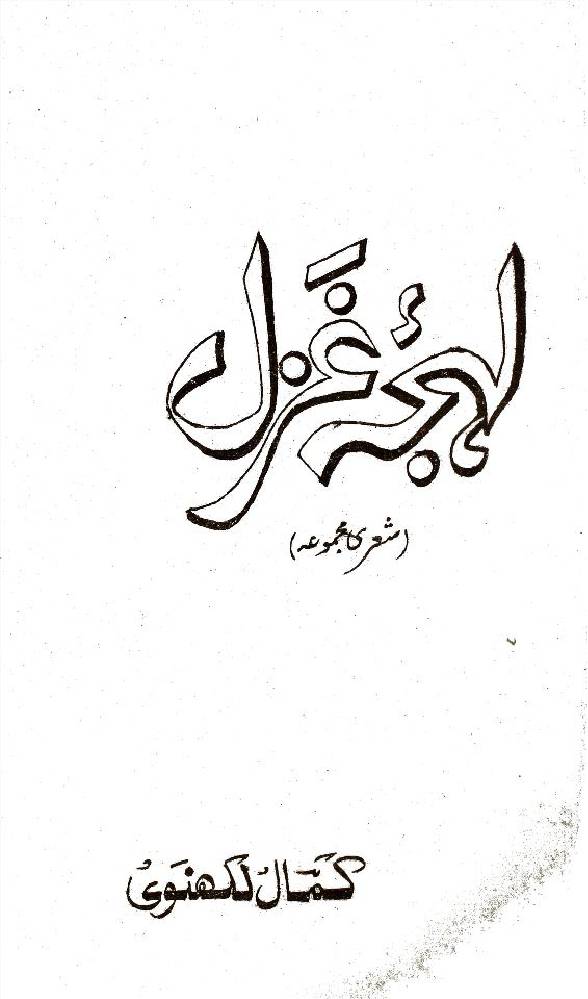 لہجۂ غزل
(شعری مجموعہ)
کمال لکھنوی